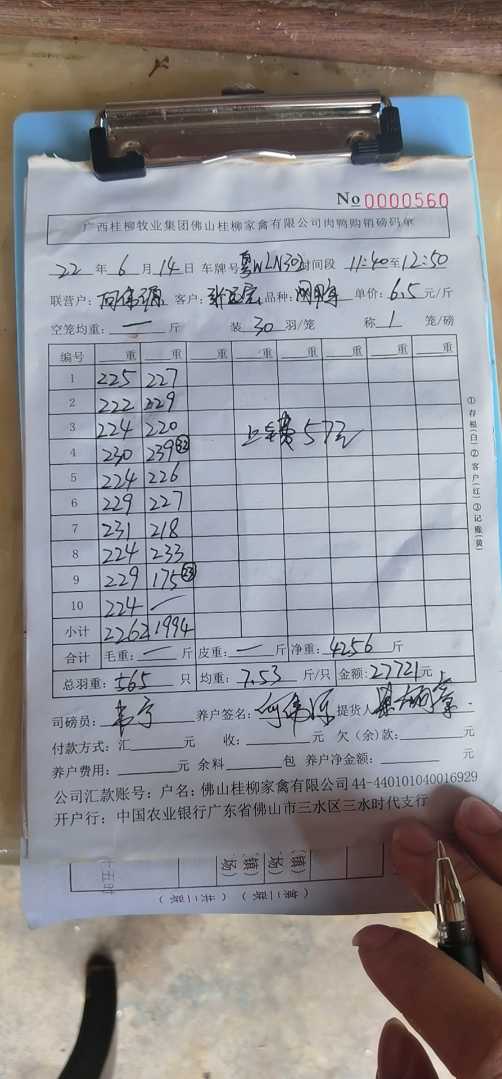 No 0000560
广西桂柳牧业集团佛山桂柳家禽有限公司肉鸭购销磅码单
22 年 6 月 14 日 车牌号 粤WLN302 时间段 11:40 至 12:50
联营户: 何伟源 客户: 品种: 单价: 6.5 元/斤
空笼均重: — 斤 装 30 羽/笼 称 1 笼/磅
编号 重 重 重 重 重 重 重 重
1 225 227
2 222 229
3 224 220
4 230 239 32
5 224 226
6 229 227
7 231 218
8 224 233
9 229 175 23
10 224 —
小计 2262 1994
上车费 57元
合计 毛重: — 斤 皮重: — 斤 净重: 4256 斤
总羽重: 565 只 均重: 7.53 斤/只 金额: 27721 元
司磅员: 养户签名: 何伟源 提货人
付款方式: 汇 元 收: 元 欠(余)款: 元
养户费用: 元 余料 包 养户净金额: 元
公司汇款账号: 户名: 佛山桂柳家禽有限公司 44-440101040016929
开户行: 中国农业银行广东省佛山市三水区三水时代支行
①存根(白)②客户(红)③记账(黄)